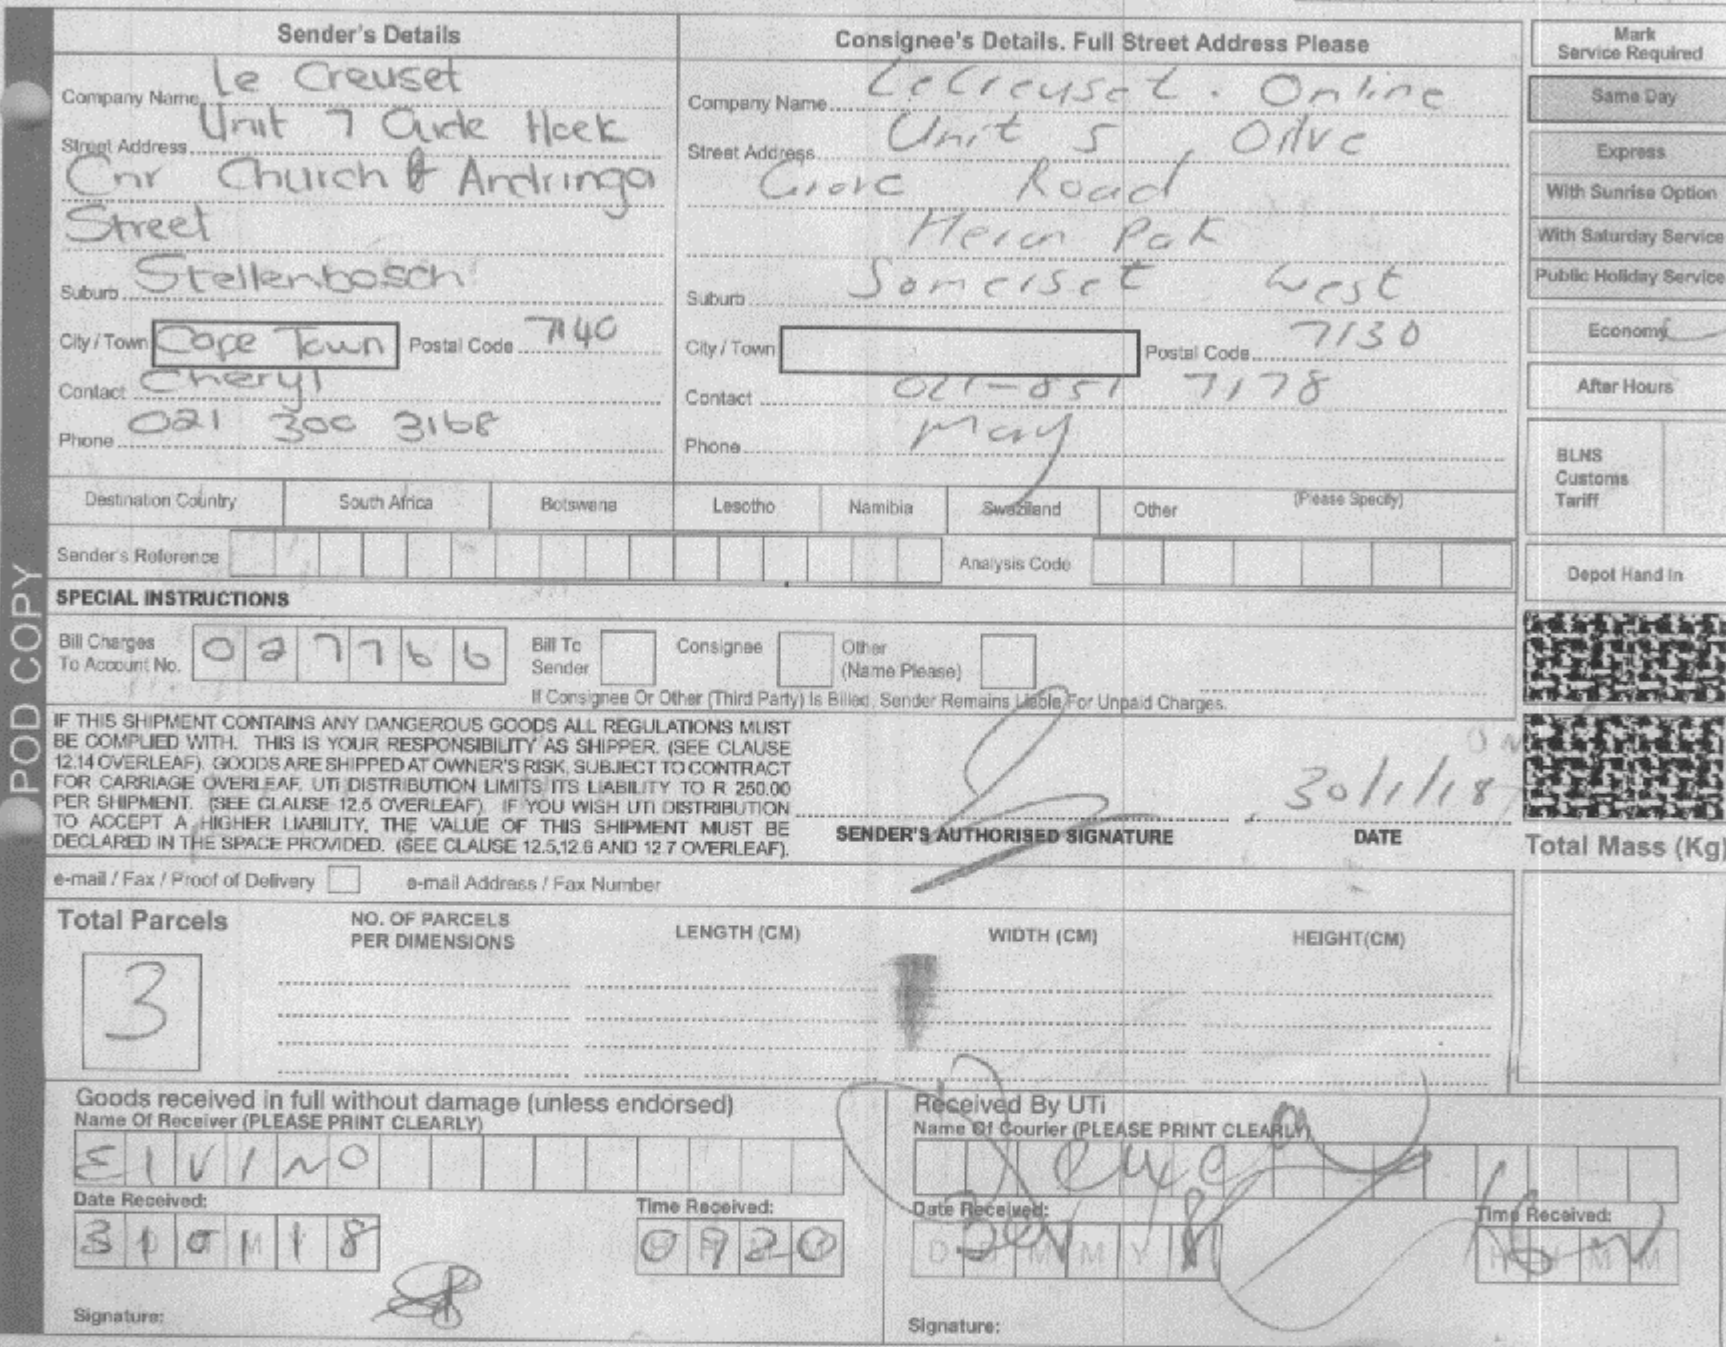 POD COPY
Sender's Details
Company Name Le Creuset
Street Address Unit 7 Oude Hoek
Cnr Church & Andringa
Street
Suburb Stellenbosch
City / Town Cape Town Postal Code 7140
Contact Cheryl
Phone 021 300 3168
Consignee's Details. Full Street Address Please
Company Name Le Creuset. Online
Street Address Unit 5, Olive
Grove Road
Heron Pak
Suburb Somerset West
City / Town Postal Code 7130
Contact 021-851 7178
Phone May
Mark
Service Required
Same Day
Express
With Sunrise Option
With Saturday Service
Public Holiday Service
Economy
After Hours
BLNS
Customs
Tariff
Depot Hand In
Destination Country South Africa Botswana Lesotho Namibia Swaziland Other (Please Specify)
Sender's Reference Analysis Code
SPECIAL INSTRUCTIONS
Bill Charges
To Account No. 027766
Bill To
Sender
Consignee
Other
(Name Please)
If Consignee Or Other (Third Party) Is Billed, Sender Remains Liable For Unpaid Charges.
IF THIS SHIPMENT CONTAINS ANY DANGEROUS GOODS ALL REGULATIONS MUST
BE COMPLIED WITH. THIS IS YOUR RESPONSIBILITY AS SHIPPER. (SEE CLAUSE
12.14 OVERLEAF). GOODS ARE SHIPPED AT OWNER'S RISK, SUBJECT TO CONTRACT
FOR CARRIAGE OVERLEAF. UTi DISTRIBUTION LIMITS ITS LIABILITY TO R 250.00
PER SHIPMENT. (SEE CLAUSE 12.5 OVERLEAF). IF YOU WISH UTi DISTRIBUTION
TO ACCEPT A HIGHER LIABILITY, THE VALUE OF THIS SHIPMENT MUST BE
DECLARED IN THE SPACE PROVIDED. (SEE CLAUSE 12.5,12.6 AND 12.7 OVERLEAF).
SENDER'S AUTHORISED SIGNATURE
30/1/18
DATE
Total Mass (Kg)
e-mail / Fax / Proof of Delivery e-mail Address / Fax Number
Total Parcels
3
NO. OF PARCELS
PER DIMENSIONS
LENGTH (CM) WIDTH (CM) HEIGHT(CM)
Goods received in full without damage (unless endorsed)
Name Of Receiver (PLEASE PRINT CLEARLY)
ELVINO
Date Received: Time Received:
310118 0920
Signature:
Received By UTi
Name Of Courier (PLEASE PRINT CLEARLY)
Date Received: Time Received:
Signature: